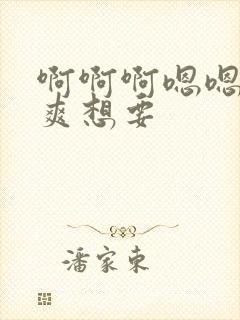 啊啊啊嗯嗯
爽想要
潘家东